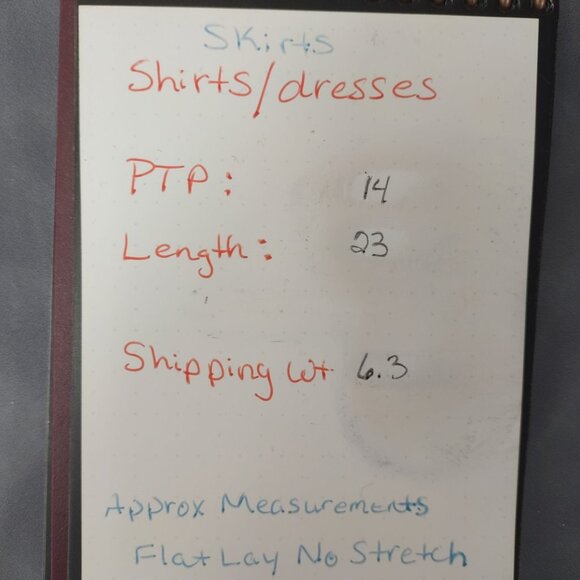 Skirts
Shirts/dresses
PTP: 14
Length: 23
Shipping Wt 6.3
Approx Measurements
Flat Lay No Stretch